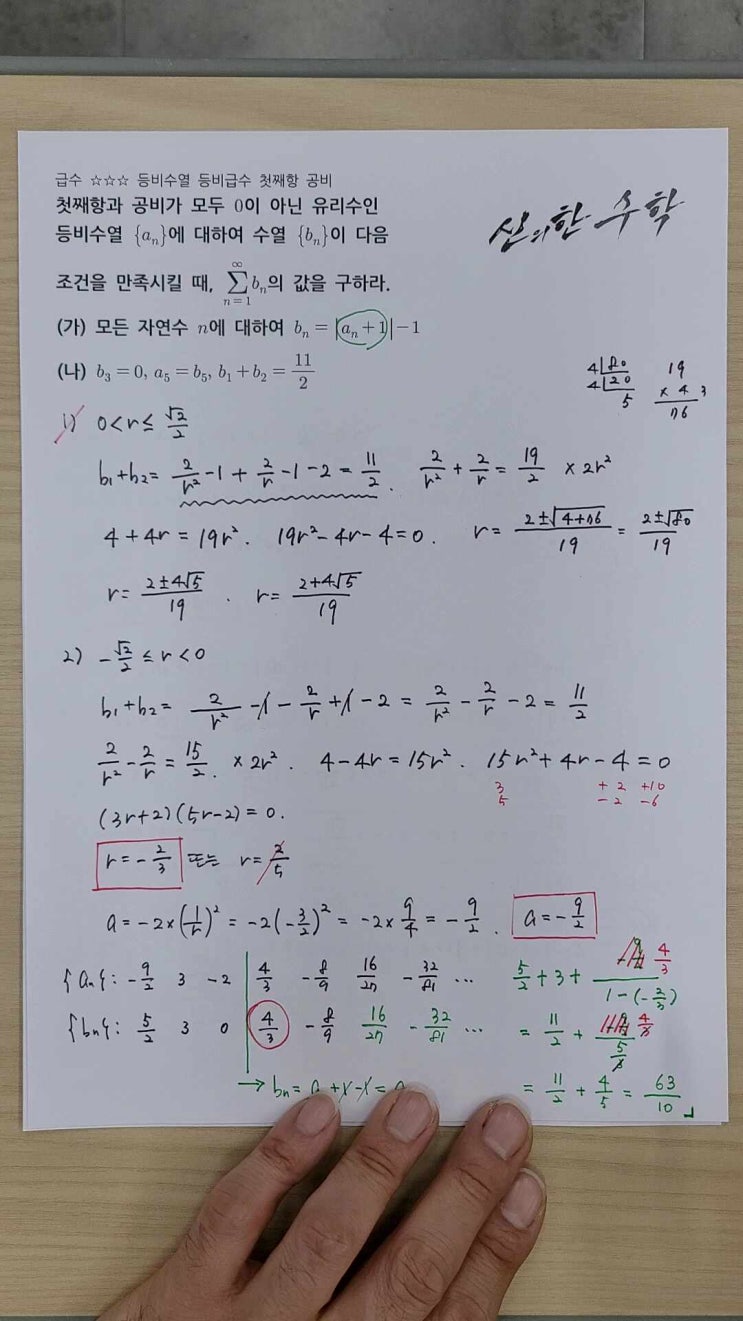 급수 ☆☆☆ 등비수열 등비급수 첫째항 공비
첫째항과 공비가 모두 0이 아닌 유리수인
등비수열 {aₙ}에 대하여 수열 {bₙ}이 다음
조건을 만족시킬 때, ∑_{n=1}^{∞} bₙ의 값을 구하라.
(가) 모든 자연수 n에 대하여 bₙ = |aₙ+1|−1
(나) b₃ = 0, a₅ = b₅, b₁+b₂ = 11/2
신의한 수학
4 80
4 20
5
19
× 4
76
1) 0<r≤ √2/2
b₁+b₂= 2/r² −1 + 2/r −1−2 = 11/2. 2/r² + 2/r = 19/2 ×2r²
4+4r = 19r². 19r²−4r−4=0. r= (2±√(4+76))/19 = (2±√80)/19
r= (2±4√5)/19. r= (2+4√5)/19
2) −√2/2 ≤ r < 0
b₁+b₂= 2/r² −1 − 2/r +1 −2 = 2/r² − 2/r −2 = 11/2
2/r² − 2/r = 15/2. ×2r². 4−4r = 15r². 15r²+4r−4 = 0
3 +2 +10
5 −2 −6
(3r+2)(5r−2) = 0.
r=−2/3 또는 r= 2/5
a = −2×(1/r)² = −2(−3/2)² = −2× 9/4 = −9/2. a=−9/2
{aₙ}: −9/2 3 −2 4/3 −8/9 16/27 −32/81 ⋯ 5/2 + 3 + (4/3)/(1−(−2/3))
{bₙ}: 5/2 3 0 4/3 −8/9 16/27 −32/81 ⋯ = 11/2 + (4/3)/(5/3)
→ bₙ = a +1−1 = = 11/2 + 4/5 = 63/10